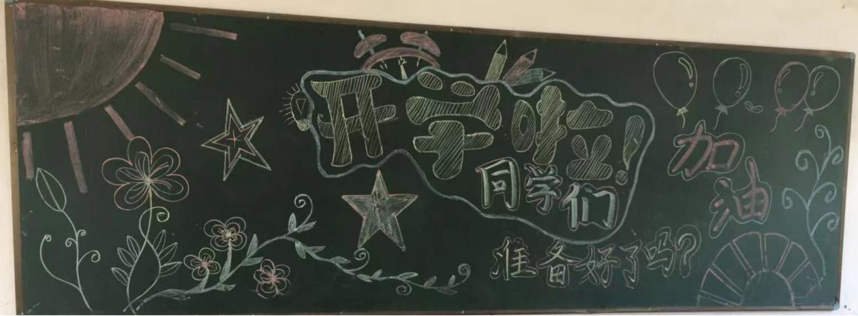 开学啦!
同学们
准备好了吗?
加油